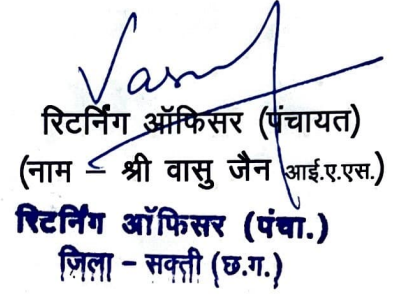 Vasu
रिटर्निंग ऑफिसर (पंचायत)
(नाम – श्री वासु जैन आई.ए.एस.)
रिटर्निंग ऑफिसर (पंचा.)
ज़िला - सक्ती (छ.ग.)